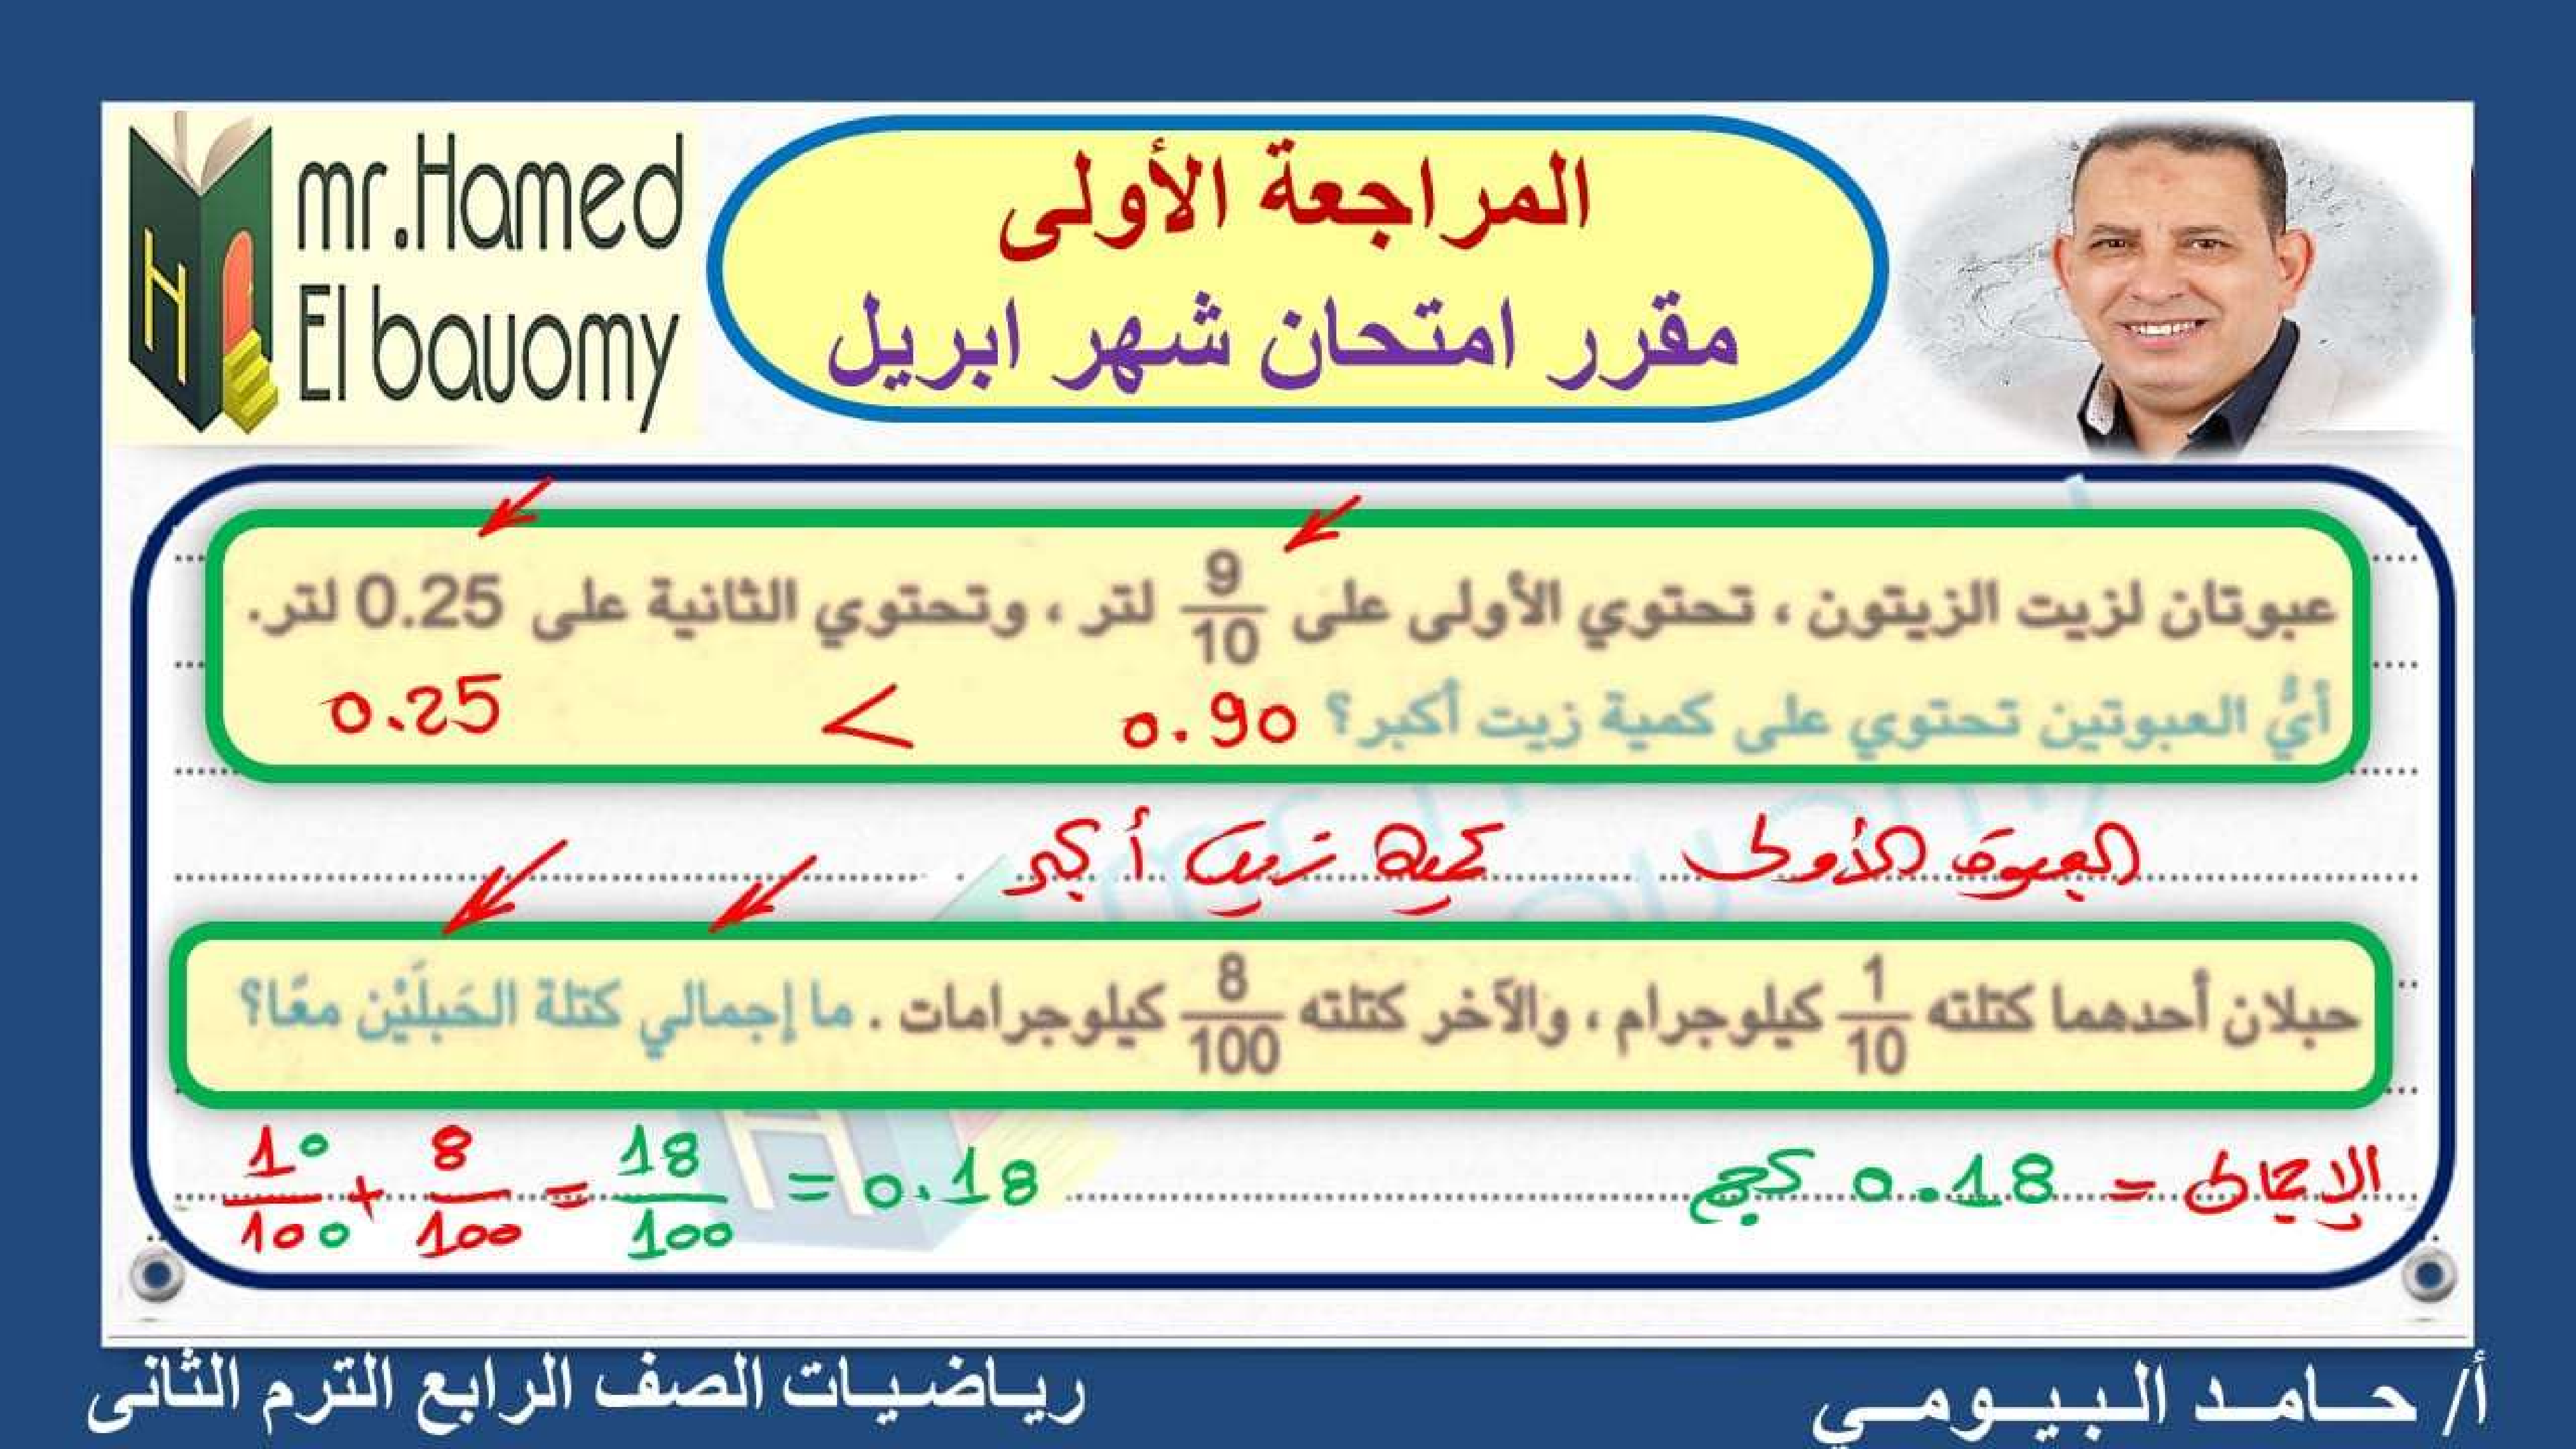 mr.Hamed
El bauomy
المراجعة الأولى
مقرر امتحان شهر ابريل
عبوتان لزيت الزيتون ، تحتوي الأولى على 9/10 لتر ، وتحتوي الثانية على 0.25 لتر.
أيُّ العبوتين تحتوي على كمية زيت أكبر؟ 0.90 < 0.25
العبوة الأولى كمية زيت أكبر
حبلان أحدهما كتلته 1/10 كيلوجرام ، والآخر كتلته 8/100 كيلوجرامات . ما إجمالي كتلة الحَبلَيْن معًا؟
الإجمالى = 0.18 كج
10/100 + 8/100 = 18/100 = 0.18
أ/ حـامـد الـبـيـومـي
ريـاضـيـات الصف الرابع الترم الثانى